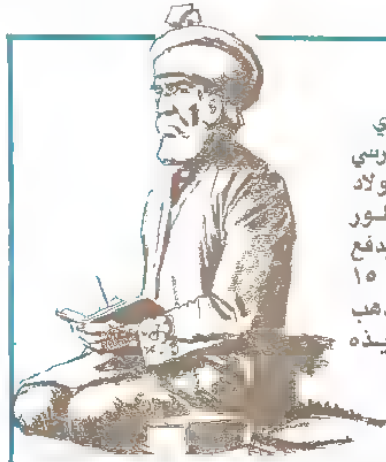 ي
رسي
ولاد
لور
دفع
١٥
هب
يذه